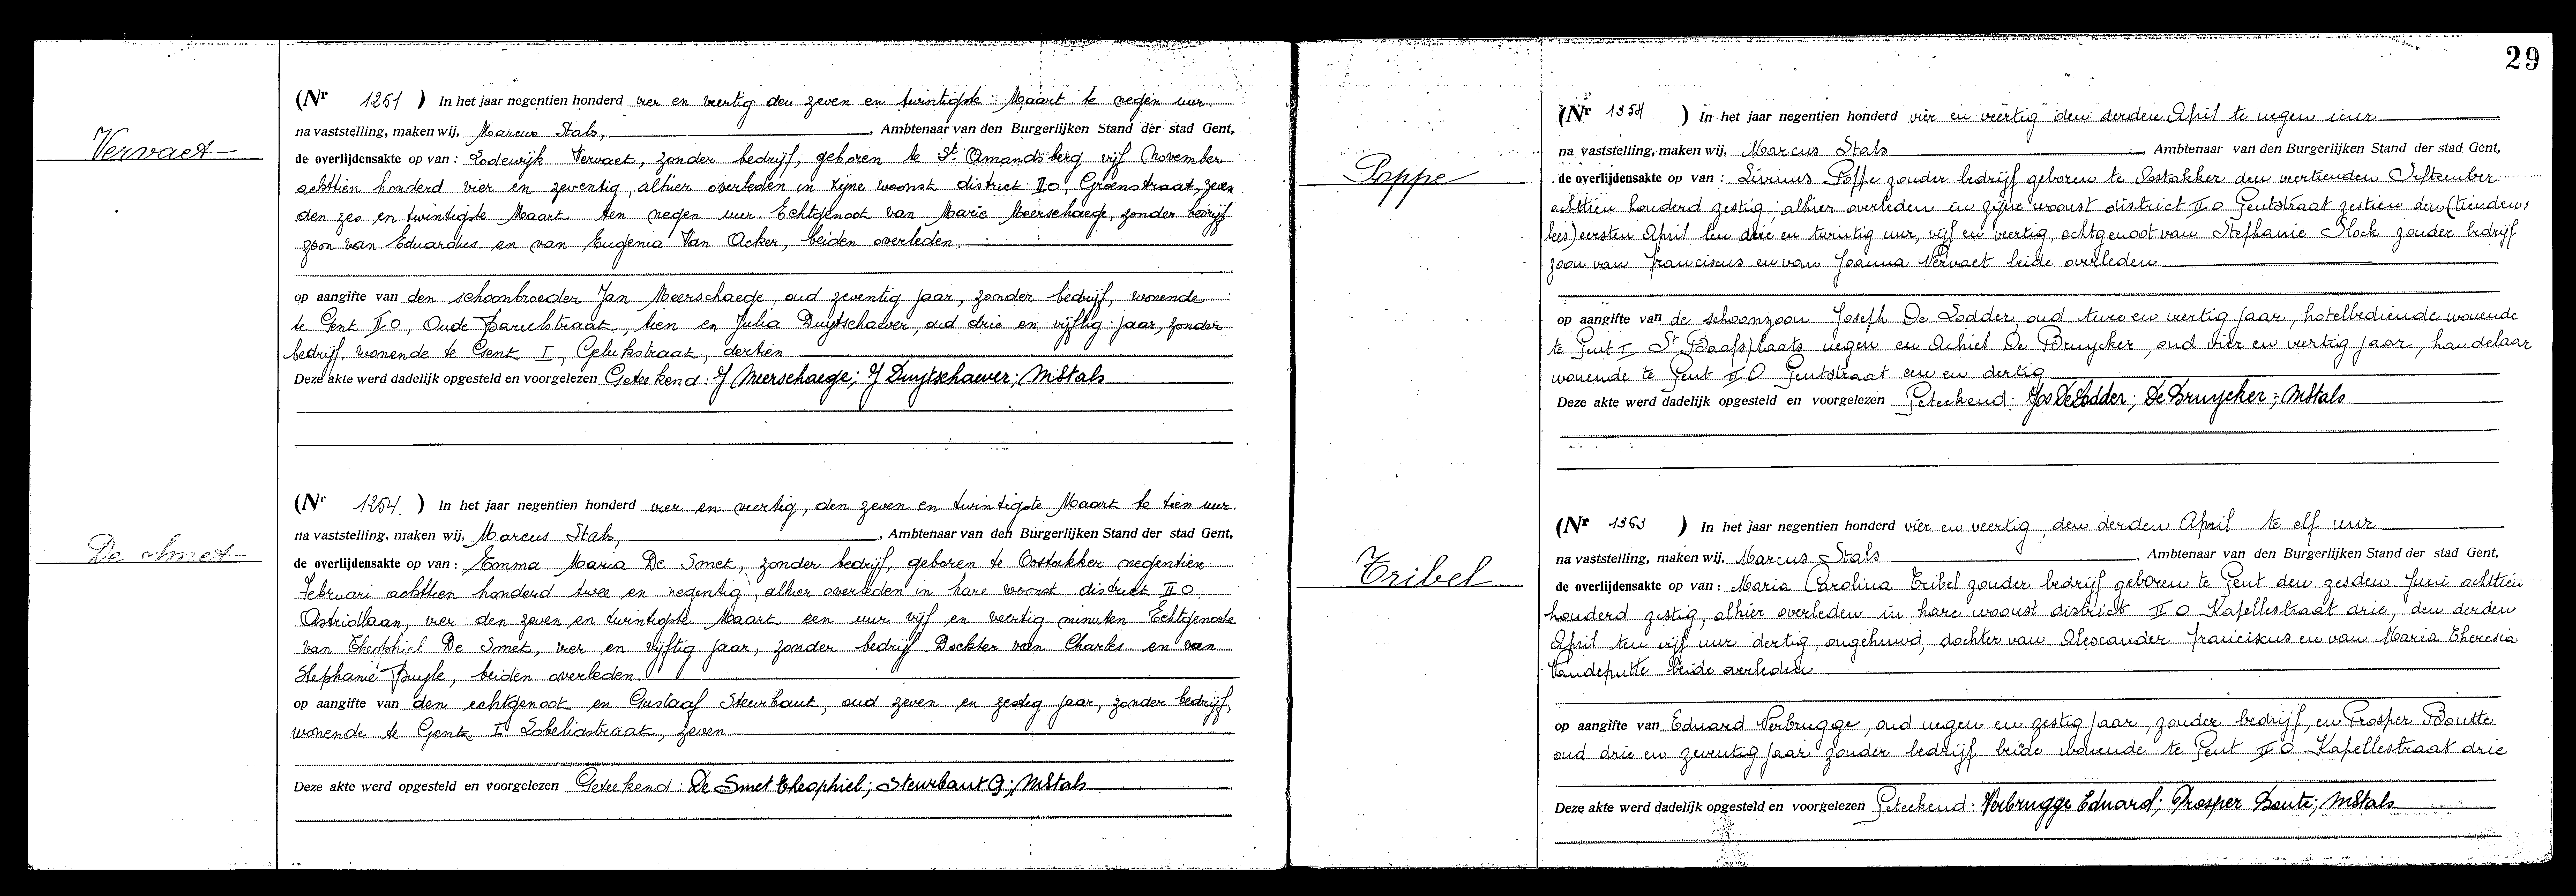 Vervaet
(Nr 1251 ) In het jaar negentien honderd vier en veertig den zeven en twintigste Maart te negen uur.
na vaststelling, maken wij, Marcus Stals, , Ambtenaar van den Burgerlijken Stand der stad Gent,
de overlijdensakte op van : Lodewijk Vervaet, zonder bedrijf, geboren te St. Amandsberg vijf November
achttien honderd vier en zeventig, alhier overleden in zijne woonst district II O, Groenstraat, zeven
den zes en twintigste Maart ten negen uur. Echtgenoot van Marie Meerschaege, zonder bedrijf
zoon van Eduardus en van Eugenia Van Acker, beiden overleden.
op aangifte van den schoonbroeder Jan Meerschaege, oud zeventig jaar, zonder bedrijf, wonende
te Gent II O, Oude straat, tien en Julia Duytschaever, oud drie en vijftig jaar, zonder
bedrijf, wonende te Gent I, Gelukstraat, dertien
Deze akte werd dadelijk opgesteld en voorgelezen Geteekend : J Meerschaege; J Duytschaever; MStals
De Smet
(Nr 1254. ) In het jaar negentien honderd vier en veertig, den zeven en twintigste Maart te tien uur.
na vaststelling, maken wij, Marcus Stals, , Ambtenaar van den Burgerlijken Stand der stad Gent,
de overlijdensakte op van : Emma Maria De Smet, zonder bedrijf, geboren te Oostakker negentien
Februari achttien honderd twee en negentig, alhier overleden in hare woonst district II O.
Astridlaan, vier den zeven en twintigste Maart een uur vijf en veertig minuten Echtgenoote
van Theophiel De Smet, vier en vijftig jaar, zonder bedrijf Dochter van Charles en van
Stephanie Buyle, beiden overleden.
op aangifte van den echtgenoot en Gustaaf Steurbaut, oud zeven en zestig jaar, zonder bedrijf,
wonende te Gent I Lobeliastraat, zeven
Deze akte werd opgesteld en voorgelezen Geteekend : De Smet Theophiel; Steurbaut G; MStals
29
Poppe
(Nr 1354 ) In het jaar negentien honderd vier en veertig den derden April te negen uur
na vaststelling, maken wij, Marcus Stals , Ambtenaar van den Burgerlijken Stand der stad Gent,
de overlijdensakte op van : Livinus Poppe zonder bedrijf geboren te Oostakker den veertienden September
achttien honderd zestig, alhier overleden in zijne woonst district II O Gentstraat zestien den (tienden:
lees) eersten April ten drie en twintig uur, vijf en veertig, echtgenoot van Stephanie Stock zonder bedrijf
zoon van Franciscus en van Joanna Vervaet beide overleden
op aangifte van de schoonzoon Joseph De Lodder, oud twee en veertig jaar, hotelbediende wonende
te Gent I St Baafsplaats negen en Achiel De Bruycker, oud vier en veertig jaar, handelaar
wonende te Gent II O Gentstraat een en dertig
Deze akte werd dadelijk opgesteld en voorgelezen Geteekend : Jos DeLodder; De Bruycker; MStals
Tribel
(Nr 1363 ) In het jaar negentien honderd vier en veertig, den derden April te elf uur
na vaststelling, maken wij, Marcus Stals , Ambtenaar van den Burgerlijken Stand der stad Gent,
de overlijdensakte op van : Maria Carolina Tribel zonder bedrijf geboren te Gent den zesden Juni achttien
honderd zestig, alhier overleden in hare woonst district II O Kapellestraat drie, den derden
April ten vijf uur dertig, ongehuwd, dochter van Alexander Franciscus en van Maria Theresia
Vandeputte beide overleden
op aangifte van Eduard Verbrugge, oud negen en zestig jaar, zonder bedrijf, en Prosper Boutte
oud drie en zeventig jaar zonder bedrijf beide wonende te Gent II O Kapellestraat drie
Deze akte werd dadelijk opgesteld en voorgelezen Geteekend : Verbrugge Eduard; Prosper Boute; MStals